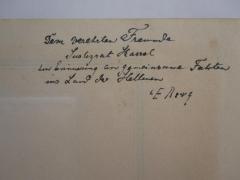 Dem verehrten Freunde
Justizrat
zur Erinnerung an gemeinsame Fahrten
ins Land der Hellenen